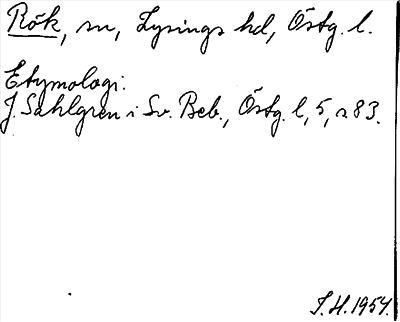 Rök, sn, Lysings hd, Östg. l.
Etymologi:
J. Sahlgren i Sv. Beb., Östg. l, 5, s 83.
I. H. 1954.